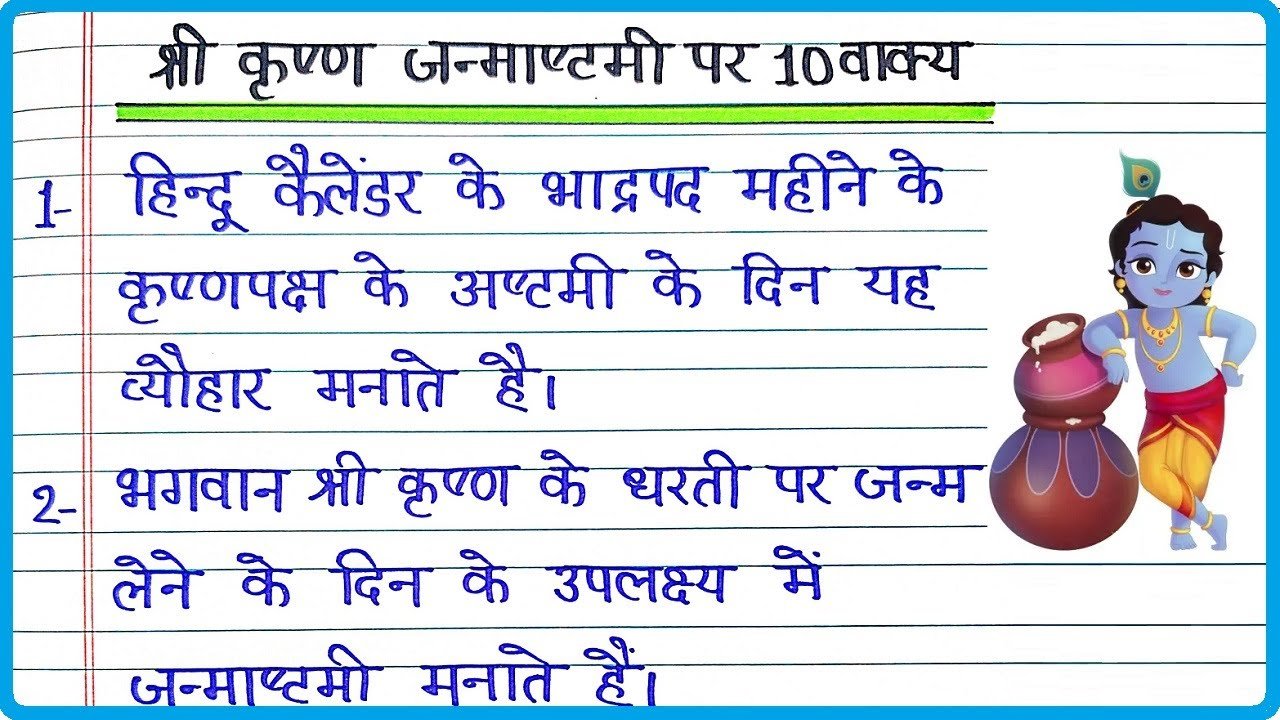 श्री कृष्ण जन्माष्टमी पर 10 वाक्य
1- हिन्दू कैलेंडर के भाद्रपद महीने के
कृष्णपक्ष के अष्टमी के दिन यह
त्यौहार मनाते है।
2- भगवान श्री कृष्ण के धरती पर जन्म
लेने के दिन के उपलक्ष्य में
जन्माष्टमी मनाते हैं।